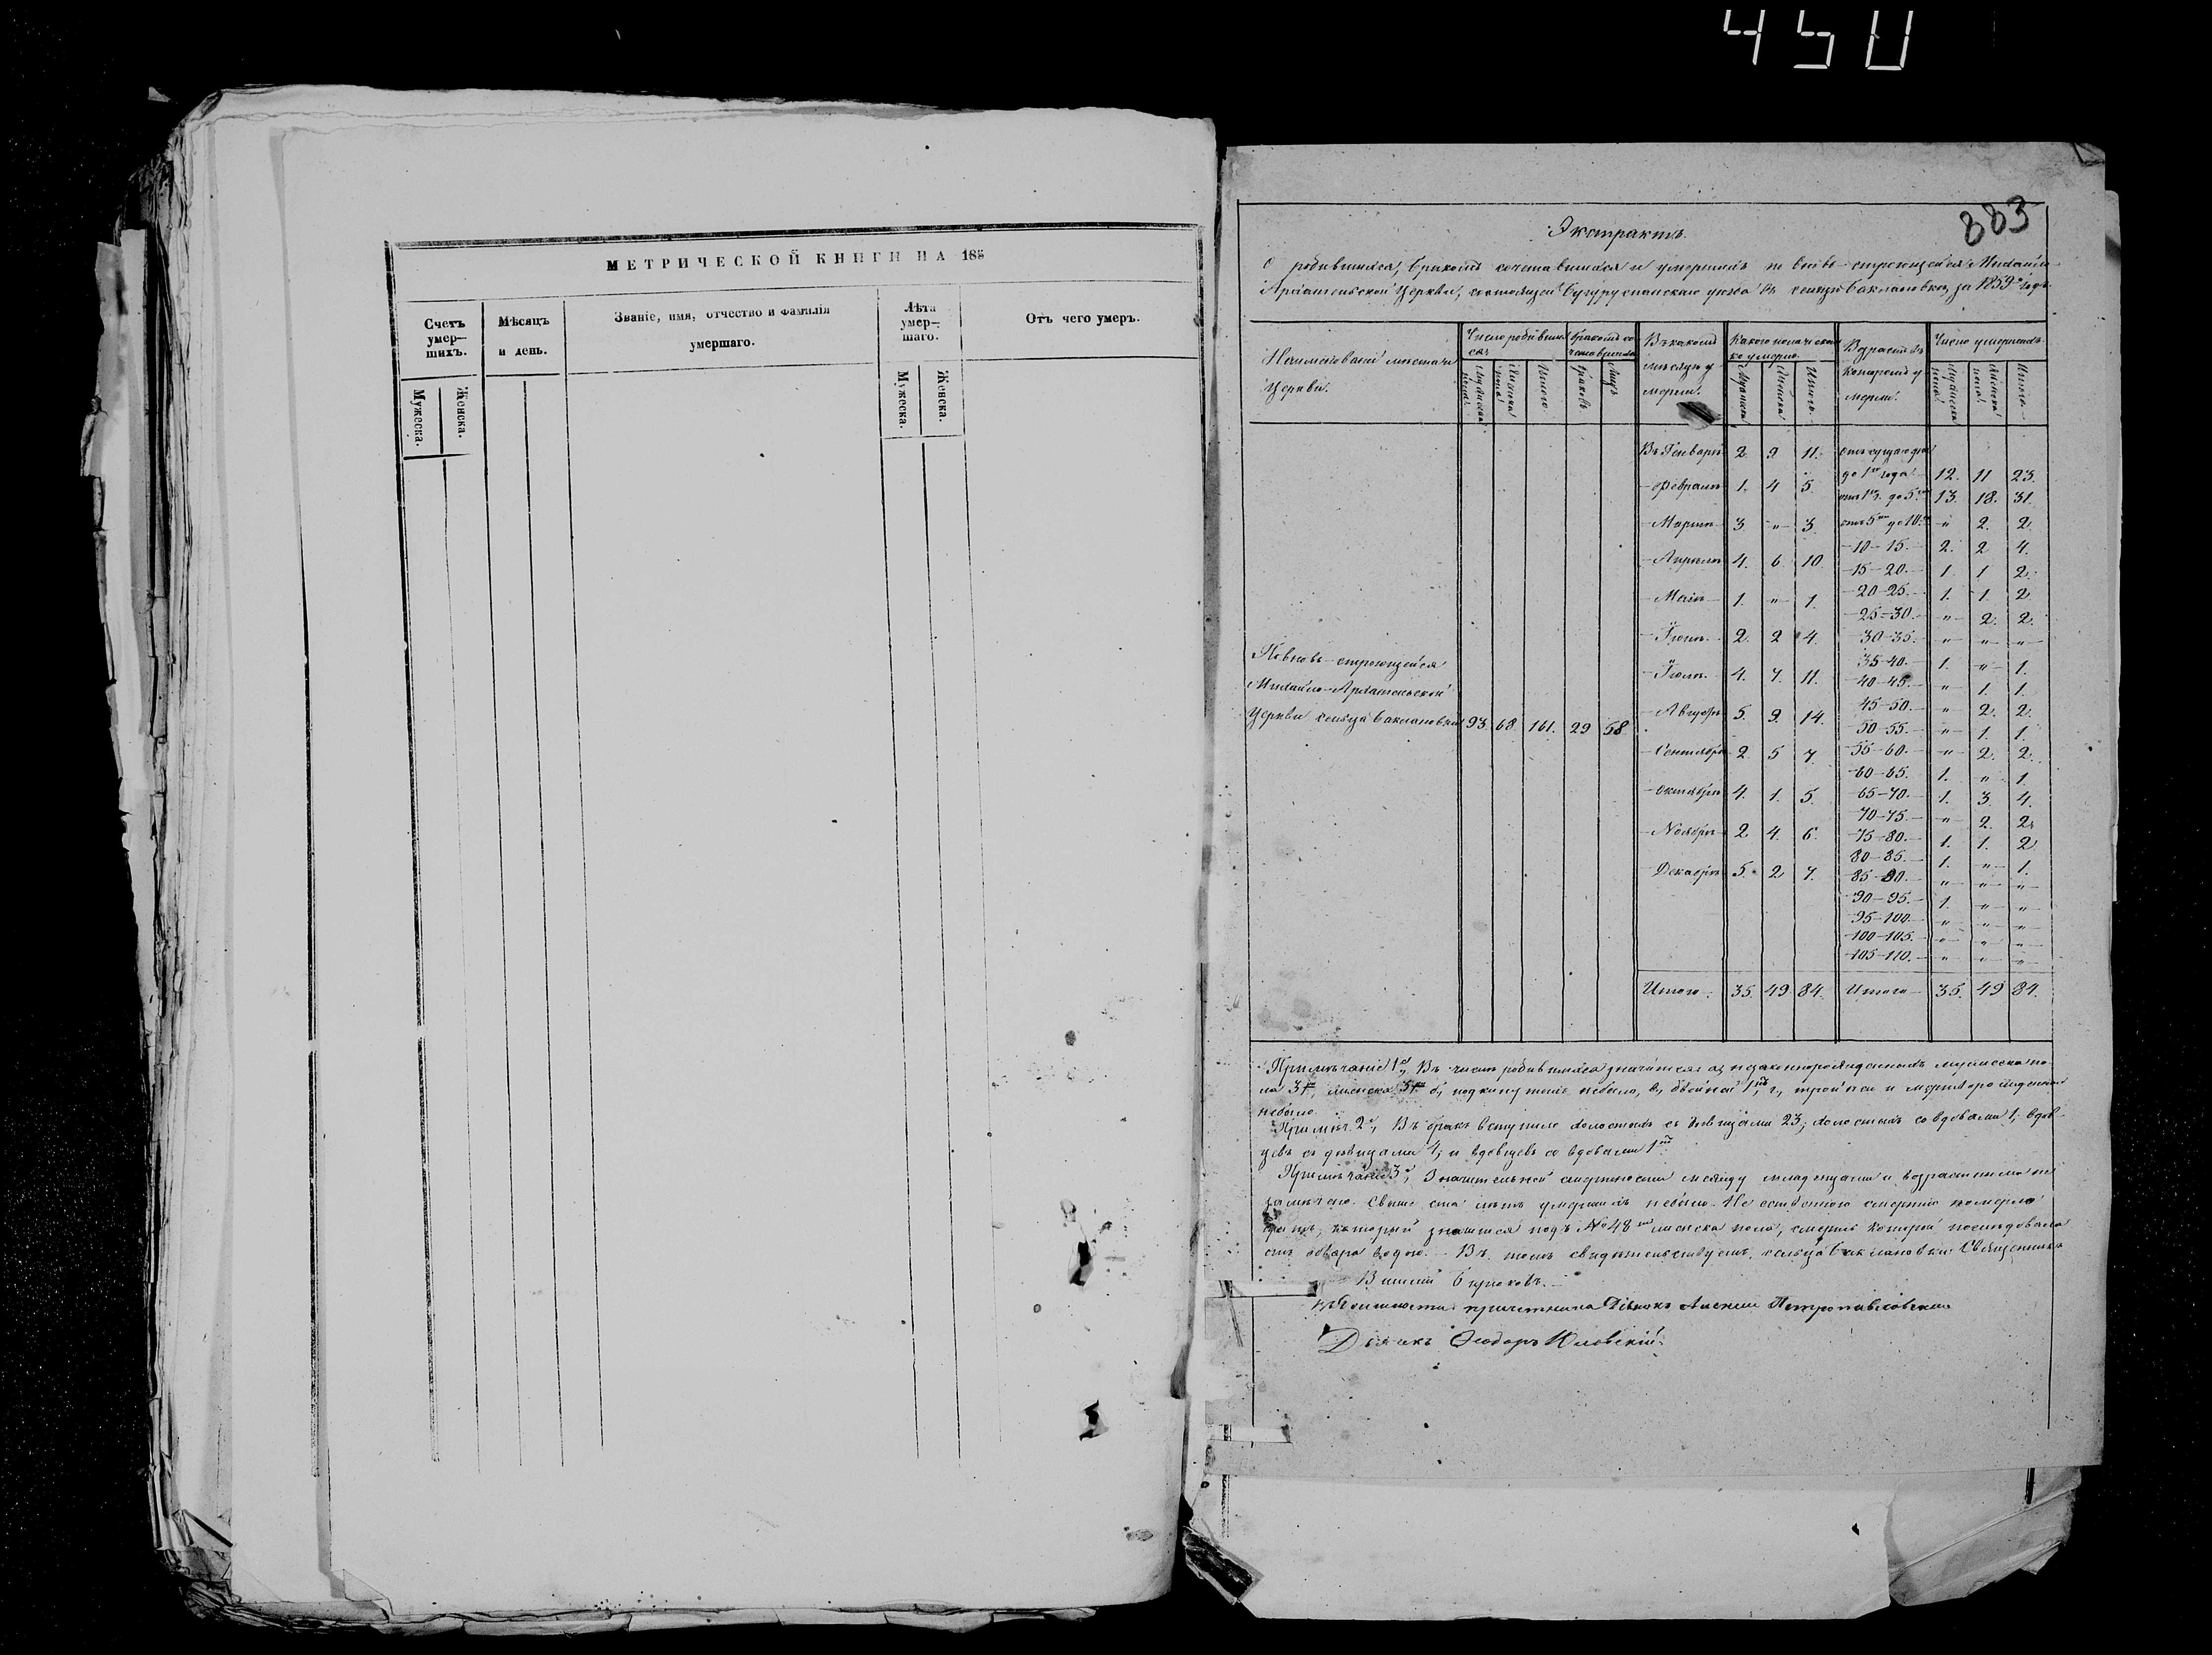 450
МЕТРИЧЕСКОЙ КНИГИ НА 185
Счетъ умер-шихъ.
Мужеска.
Женска.
Мѣсяцъ и день.
Званіе, имя, отчество и фамилія умершаго.
Лѣта умер-шаго.
Мужеска.
Женска.
Отъ чего умеръ.
883
Экстрактъ
о родившихся, бракомъ сочетавшихся и умершихъ по вновь-строющейся Михайло-
Архангельской церкви, состоящей Бугурусланскаго уѣзда въ сельцѣ Баклановкѣ, за 1859й годъ.
Наименованіе мѣста и церкви.
Число родившихся
Мужеска пола
Женска пола
Итого
Бракомъ сочетавшихся
Браковъ
Лицъ
Въ какомъ мѣсяцѣ умерли.
Какого пола и сколько умерло.
Мужеска
Женска
Итого
Возрастъ въ которомъ умерли.
Число умершихъ.
Мужеска пола
Женска пола
Итого
По вновь-строющейся
Михайло-Архангельской
церкви сельца Баклановки 93. 68. 161. 29 58.
Въ Генварѣ 2. 9 11.
Февралѣ 1. 4 5.
Мартѣ 3. " 3.
Апрѣлѣ 4. 6. 10.
Маіѣ 1. " 1.
Іюнѣ 2. 2 4.
Іюлѣ 4. 7. 11.
Августѣ 5. 9. 14.
Сентябрѣ 2. 5 7.
Октябрѣ 4. 1. 5.
Ноябрѣ 2 4. 6.
Декабрѣ 5. 2 7.
Итого 35. 49. 84.
до 1го года 12. 11 23.
отъ 1го до 5ти 13. 18. 31.
отъ 5ти до 10 " 2. 2
10-15. 2. 2 4.
15-20. 1. 1 2.
20-25. 1. 1. 2
25-30. " 2. 2.
30-35. " " "
35-40. 1. " 1.
40-45. " 1. 1.
45-50. " 2. 2.
50-55. " 1. 1.
55-60. " 2. 2.
60-65. 1. " 1.
65-70. 1. 3. 4.
70-75. " 2. 2.
75-80. 1. 1. 2
80-85. 1. " 1.
85-90. " " "
90-95. 1. " "
95-100 " " "
100-105. " " "
105-110. " " "
Итого 35. 49 84.
Примѣчаніе 1е, Въ числѣ родившихся значится: а, незаконнорожденныхъ мужеска по-
ла 3, женска 3 б, подкинутыхъ небыло, в, двойни 1, г, тройни и мертворожденныхъ
небыло.
Примѣч. 2е, Въ бракъ вступило холостыхъ съ дѣвицами 23, холостыхъ со вдовами 1, вдов-
цевъ съ дѣвицами 4, и вдовцевъ со вдовами 1.
Примѣчаніе 3е, Значительной смертности между младенцами и возрастными не
замѣчено. Свыше ста лѣтъ умершихъ небыло. Не естественною смертію померло
который значится подъ №48 женска пола, смерть которой послѣдовала
отъ обвара водою. Въ томъ свидѣтельствуетъ, сельца Баклановки Священникъ
Василій Бирюковъ.
причетника Дьяконъ Алексѣй Петропавловскій
Дьячекъ Ѳеодоръ Юловскій.